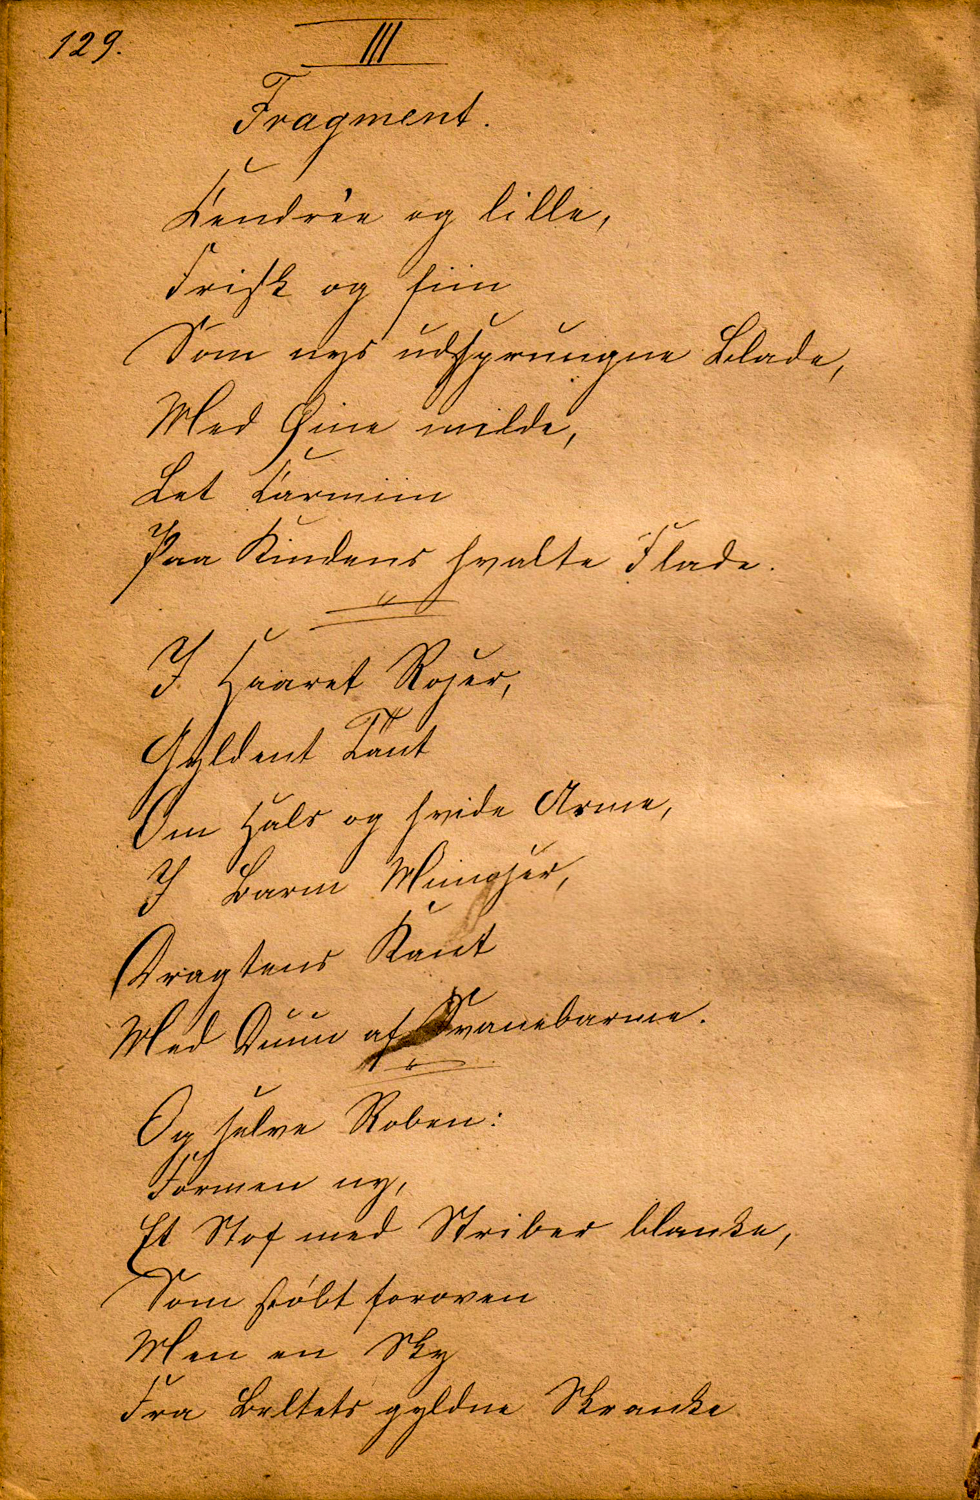 129.
III
Fragment.
Cendrée og lille,
Frisk og fiin
Som nys udsprungne Blade,
Med Øine milde,
Let Carmiin
Paa Kindens hvalte Flade.
I Haaret Roser,
Gyldent Tant
Om Hals og hvide Arme,
I Barm Mimoser,
Dragtens Kant
Med Duun af Svanebarme.
Og selve Roben:
Formen ny,
Et Stof med Striber blanke,
Som støbt foroven
Men en Sky
Fra Beltets gyldne Skranke